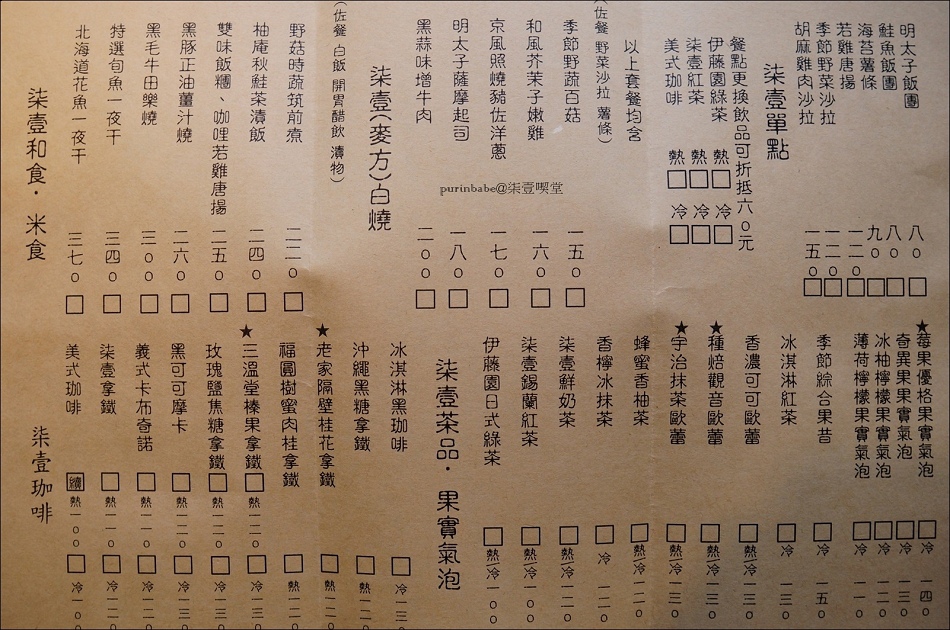 柒壹和食・米食
北海道花魚一夜干 三七0 □
特選旬魚一夜干 三四0 □
黑毛牛田樂燒 三00 □
黑豚正油薑汁燒 二六0 □
雙味飯糰、咖哩若雞唐揚 二五0 □
柚庵秋鮭茶漬飯 二四0 □
野菇時蔬筑前煮 二二0 □
(佐餐 白飯 開胃醋飲 漬物)
柒壹(麥方)白燒
黑蒜味增牛肉 二00 □
明太子薩摩起司 一八0 □
京風照燒豬佐洋蔥 一七0 □
和風芥茉子嫩雞 一六0 □
季節野蔬百菇 一五0 □
(佐餐 野菜沙拉 薯條)
以上套餐均含
美式咖啡 熱□ 冷□
柒壹紅茶 熱□ 冷□
伊藤園綠茶 熱□ 冷□
餐點更換飲品可折抵六0元
柒壹單點
胡麻雞肉沙拉 一五0 □
季節野菜沙拉 一二0 □
若雞唐揚 一二0 □
海苔薯條 九0 □
鮭魚飯團 八0 □
明太子飯團 八0 □
purinbabe@柒壹喫堂
柒壹珈啡
美式珈啡 續 熱一00 □ 冷一0
柒壹拿鐵 □ 熱一一0 □ 冷一二
義式卡布奇諾 □ 熱一二0 □ 冷一二
黑可可摩卡 □ 熱一二0 □ 冷一三
玫瑰鹽焦糖拿鐵 □ 熱一二0 □ 冷一三
★三溫堂榛果拿鐵 □ 熱一二0 □ 冷一三
福圓樹蜜肉桂拿鐵 □ 熱一二
★老家隔壁桂花拿鐵 □ 熱一二
沖繩黑糖拿鐵 □ 熱一二
冰淇淋黑珈啡 □ 冷一三
柒壹茶品・果實氣泡
伊藤園日式綠茶 □ 熱/冷 一00
柒壹錫蘭紅茶 □ 熱/冷 一00
柒壹鮮奶茶 □ 熱/冷 一二0
香檸冰抹茶 □ 冷 一二0
蜂蜜香柚茶 □ 熱/冷 一二0
★宇治抹茶歐蕾 □ 熱/冷 一三0
★種焙觀音歐蕾 □ 熱/冷 一三0
香濃可可歐蕾 □ 熱/冷 一三0
冰淇淋紅茶 □ 冷 一三0
季節綜合果昔 □ 冷 一五0
薄荷檸檬果實氣泡 □ 冷 一一0
冰柚檸檬果實氣泡 □ 冷 一二0
奇異果果實氣泡 □ 冷 一三0
★莓果優格果實氣泡 □ 冷 一四0